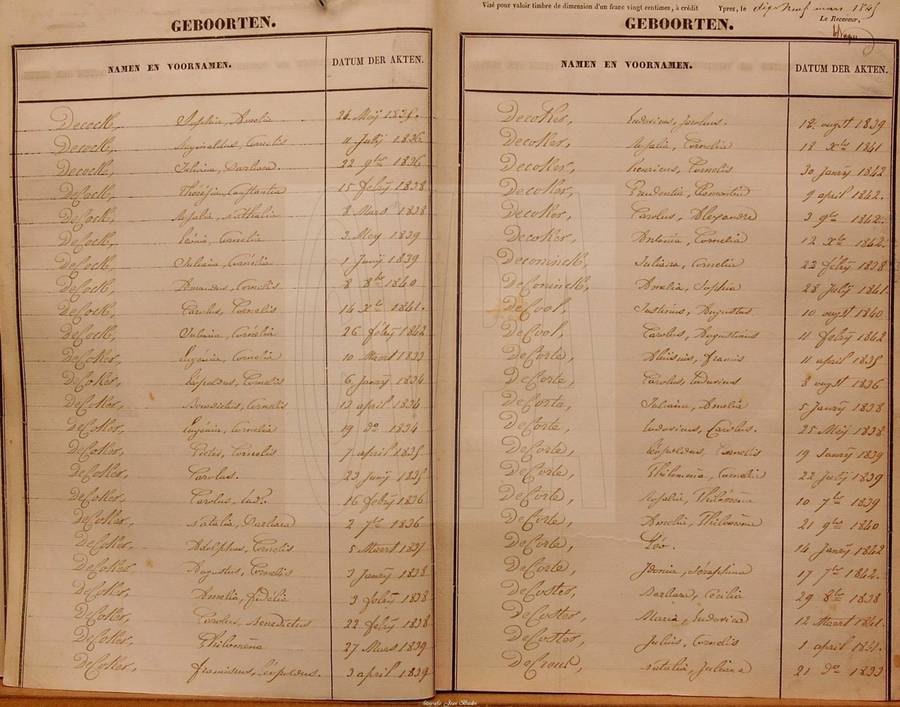 GEBOORTEN.
NAMEN EN VOORNAMEN. DATUM DER AKTEN.
Decock, Sophia, Amelia 26 Meij
Decock, Cornelis 11 Julij 1836
Decock, Juliana, Barbara. 22 9bre 1836
DeCock, Theresia, Constantia 15 febry 1838
DeCock, Rosalia, Nathalia 8 Mars 1838
DeCock, Leonia, Cornelia 3 Meij 1839
DeCock, Juliana, Cornelia 1 Junij 1839
DeCock, Amandus, Cornelis 8 8bre 1840
DeCock, Carolus, Cornelis 14 Xbre 1841.
DeCock, Juliana, Cornelia 26 febry 1842
DeCoker, Eugenia, Cornelia 10 Maart 1833
DeCoker, Leopoldus, Cornelis 6 Janry 1834
DeCoker, Benedictus, Cornelis 12 april 1834
DeCoker, Eugénia, Cornelia 19 do 1834
DeCoker, Cornelis 7 april 1835
DeCoker, Carolus. 23 Junij 1835
DeCoker, Carolus, Lud. 16 febry 1836
DeCoker, Natalia, Barbara 2 7bre 1836
DeCoker, Adolphus, Cornelis 5 Maart 1837
DeCoker, Augustus, Cornelis 3 Janry 1838
DeCoker, Amelia, Judilia 3 febry 1838
DeCoker, Carolus, Benedictus 22 febry 1838
DeCoker, Philomena 27 Mars 1839
DeCoker, Franciscus, Leopoldus. 3 april 1839
Visé pour valoir timbre de dimension d'un franc vingt centimes, à crédit Ypres, le dix neuf mars 1845
Le Receveur,
GEBOORTEN.
NAMEN EN VOORNAMEN. DATUM DER AKTEN.
Decoker, Ludovicus, Carolus. 12 augst 1839
Decoker, Rosalia, Cornelia 18 Xbre 1841
Decoker, Henricus, Cornelis 30 Janry 1842
Decoker, Prudentia, Clementia 9 april 1842.
Decoker, Carolus, Alexandre 3 9bre 1842.
Decoker, Antonia, Cornelia 12 Xbre 1842
Deconinck, Juliana, Cornelia 22 febry 1838
DeConinck, Amelia, Sophia 28 Julij 1841
DeCool, Justinus, Augustus 10 augst 1840
DeCool, Carolus, Augustinus 11 febry 1842
DeCorte, Aloisius, Francis 11 april 1835
DeCorte, Carolus, Ludovicus 8 augst 1836
DeCorte, Juliana, Amelia 5 Janry 1838
DeCorte, Ludovicus, Carolus. 25 Meij 1838
DeCorte, Leopoldus, Cornelis 19 Janry 1839
DeCorte, Philomena, Cornelia 22 Julij 1839
DeCorte, Rosalia, Philomene 10 7bre 1839
DeCorte, Amelia, Philomene 21 9bre 1840
DeCorte, Léo. 14 Janry 1842
DeCorte, Idonia, Séraphina 17 7bre 1842.
DeCoster, Barbara, Cécilia 29 8bre 1838
DeCoster, Maria, Ludovica 12 Maart 1841.
DeCoster, Julius, Cornelis 1 april
DeCroue, Natalia, Juliana 21 do 1833